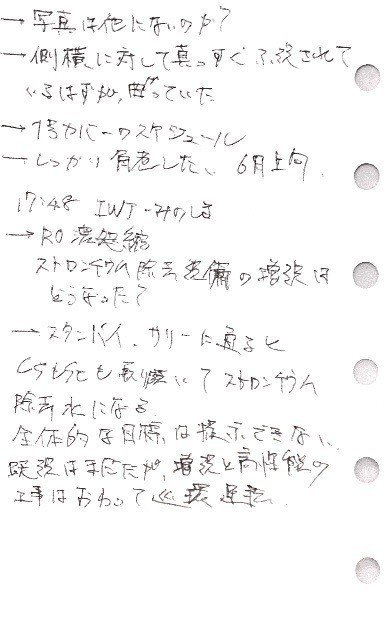 →写真は他にないのか?
→側横に対して真っすぐ 設されて
いるはずが、曲がっていた
→1号カバーのスケジュール
→しっかり した、6月上旬、
17:48 IWJ・みのしま
→RO濃縮
ストロンチウム除去設備の増設は
どうなった?
→スタンバイ、サリーに通ると
CsもSrも取除いてストロンチウム
除去水になる
全体的な目標は提示できない、
既設はまだだが、増設と高性能の
工事はおわって循環運転、